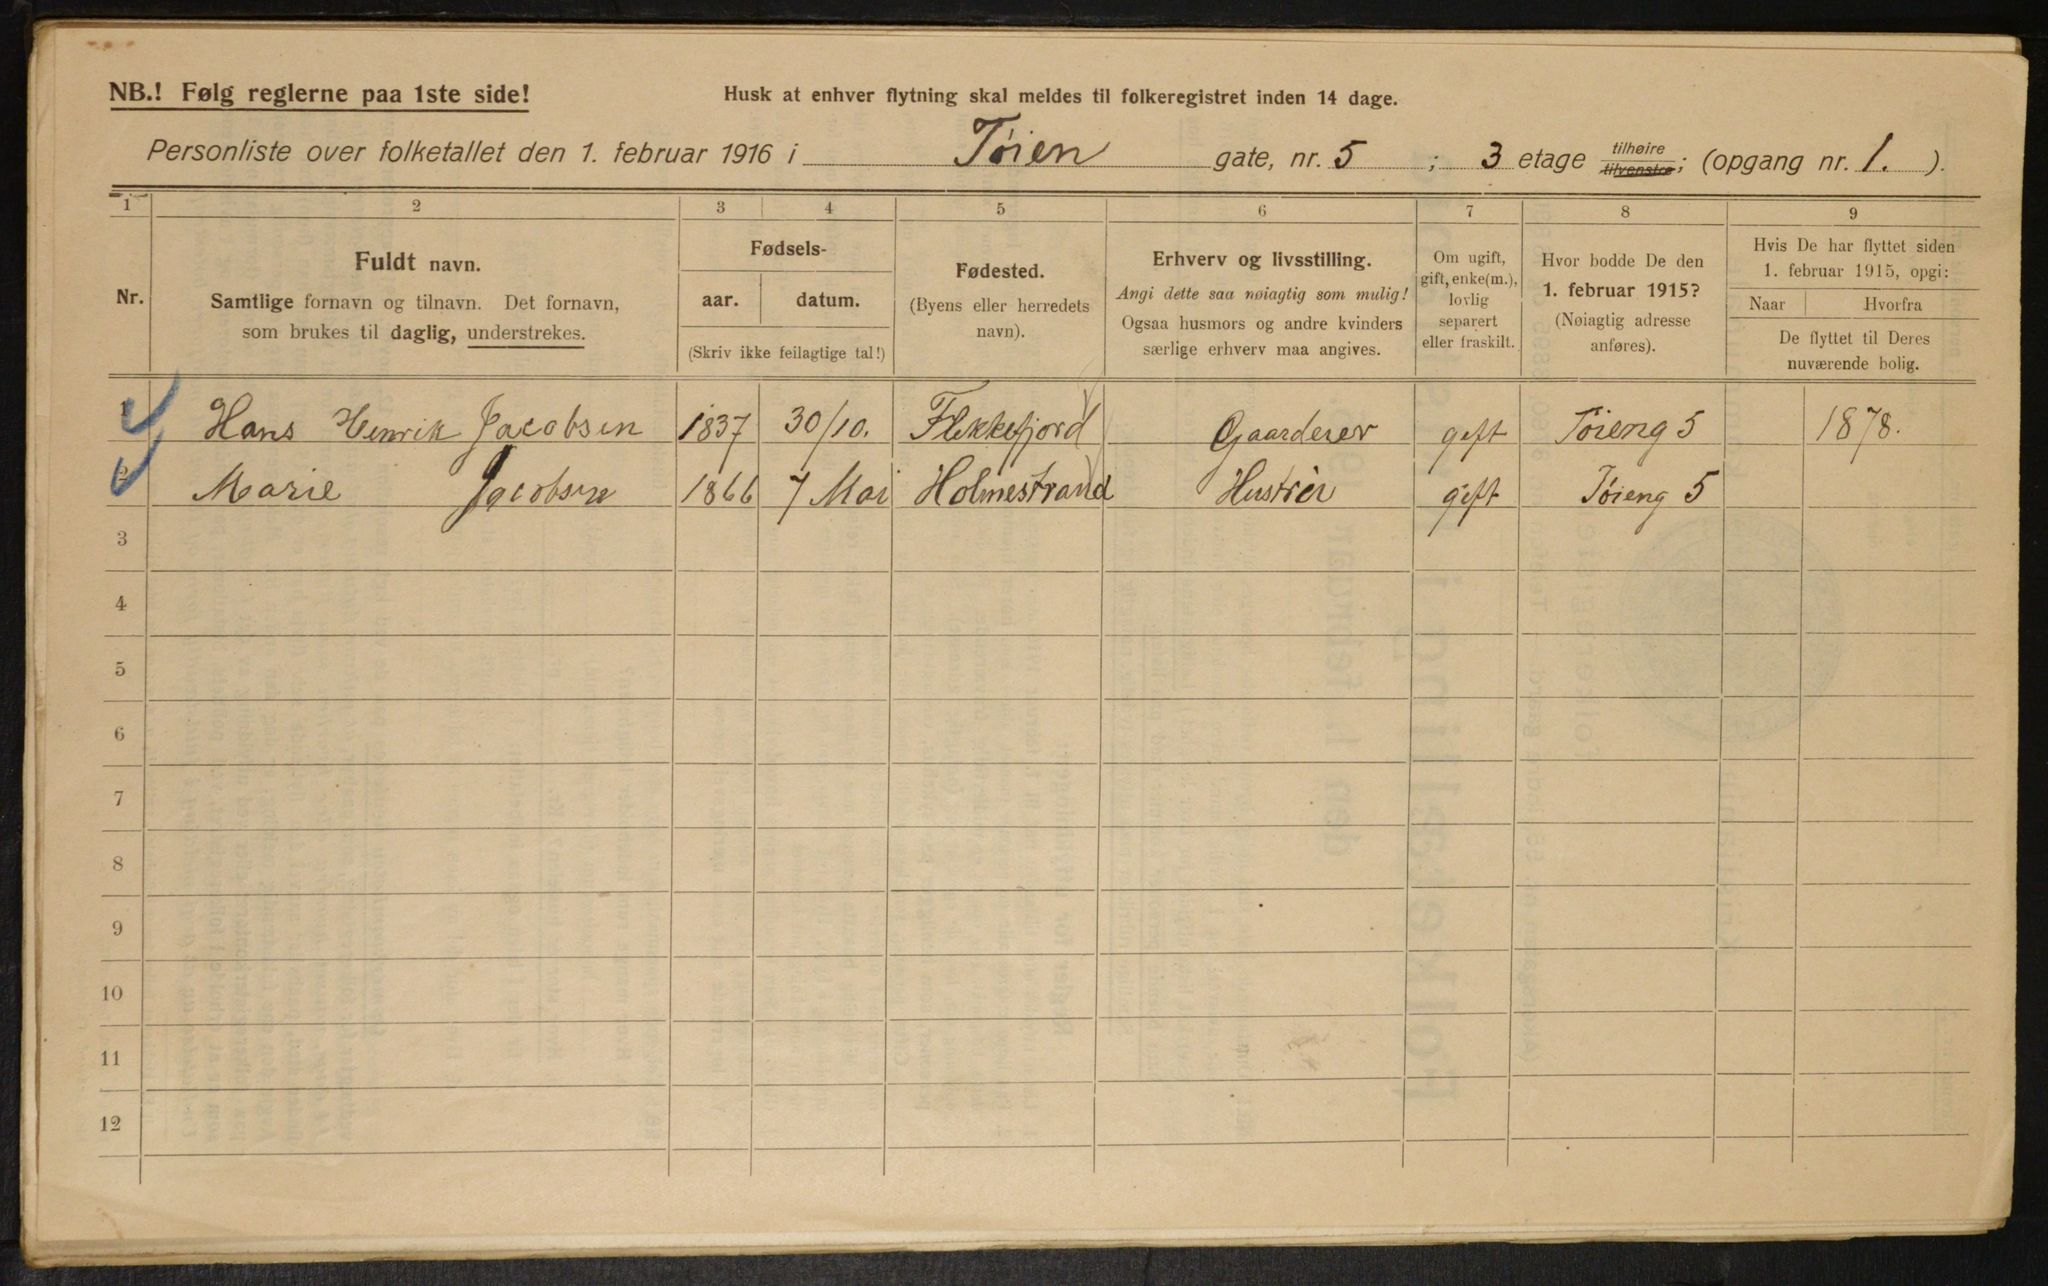 NB.! Følg reglerne paa 1ste side!
Husk at enhver flytning skal meldes til folkeregistret inden 14 dage.
Personliste over folketallet den 1. februar 1916 i Tøien gate, nr. 5 ; 3 etage tilhøire tilvenstre; (opgang nr. 1. ).
1 2 3 4 5 6 7 8 9
Nr.
Fuldt navn.
Samtlige fornavn og tilnavn. Det fornavn,
som brukes til daglig, understrekes.
Fødsels-
aar. datum.
(Skriv ikke feilagtige tal!)
Fødested.
(Byens eller herredets
navn).
Erhverv og livsstilling.
Angi dette saa nøiagtig som mulig!
Ogsaa husmors og andre kvinders
særlige erhverv maa angives.
Om ugift,
gift, enke(m.),
lovlig
separert
eller fraskilt.
Hvor bodde De den
1. februar 1915?
(Nøiagtig adresse
anføres).
Hvis De har flyttet siden
1. februar 1915, opgi:
Naar Hvorfra
De flyttet til Deres
nuværende bolig.
1 Hans Henrik Jacobsen 1837 30/10. Flekkefjord Gaardeier geft Tøieng 5 1878.
2 Marie Jacobsen 1866 7 Mai Holmestrand Hustru geft Tøieng 5
3
4
5
6
7
8
9
10
11
12